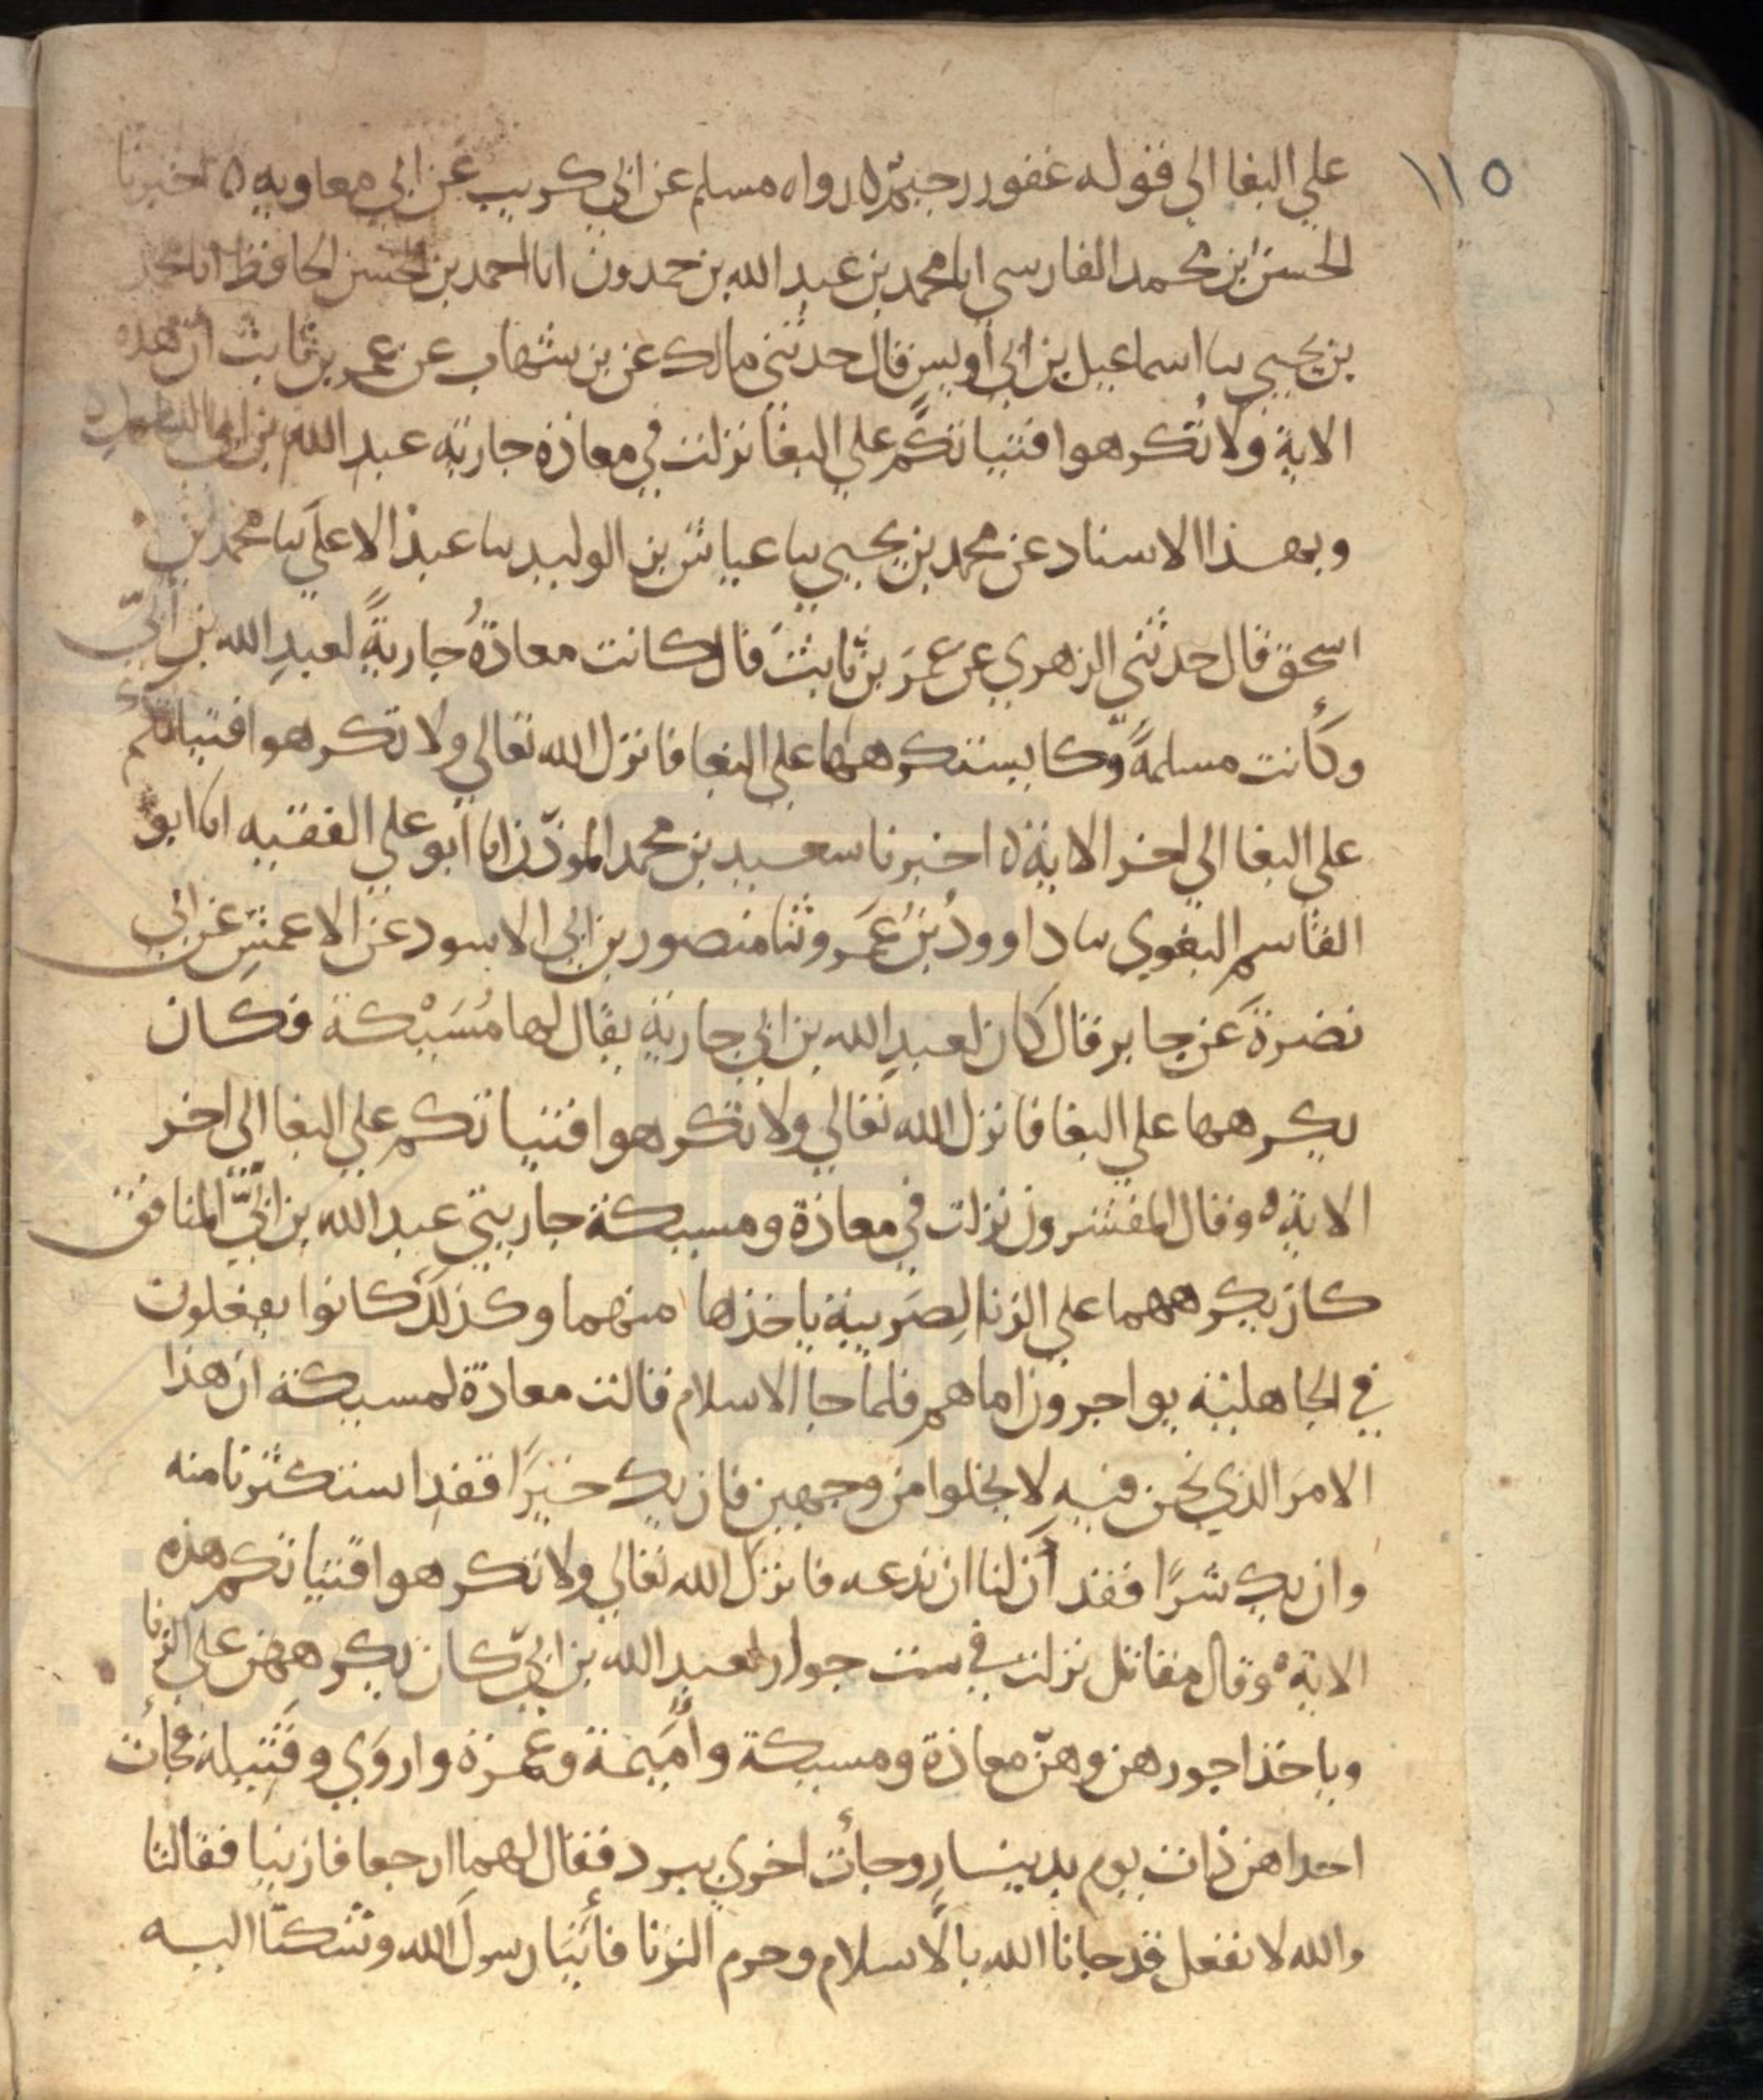 ١١٥
علي البغا الي قوله غفور رحيم ه رواه مسلم عن ابي كريب عن ابي معاويه ه اخبرنا
الحسن ابن محمد الفارسي انا محمد بن عبد الله بن حمدون انا احمد بن الحسن الحافظ انا محمد
بن يحيي سا اسماعيل بن ابي أويس قال حدثني مالك عن بن شهاب عن عمر بن ثابث ان هذه
الاية ولا تُكرهوا فتياتكم علي البغا نزلت في معاذه جارية عبد الله بن ابي
وبهذا الاسناد عن محمد بن يحيي سا عياش بن الوليد سا عبد الاعلي سا محمد بن
اسحق قال حدثني الزهري عن عمَر بن ثابث قال كانت معاذةُ جاريةً لعبدِ الله بن أبيّ
وكأنت مسلمةً وكا يستكرهها علي البغا فانزل الله تعالي ولا تكرهوا فتياتكم
علي البغا الي اخر الاية ه اخبرنا سعيد بن محمد الموذّن انا أبو علي الفقيه انا ابو
القاسم البغوي سا داوودُ بنُ عَمَرو ثنا منصور بن ابي الاسود عن الاعمشِ عن ابي
نضرةَ عن جابر قال كان لعبدِ الله بن ابي جارية يقال لها مُسَيْكة فكان
يكرهها علي البغا فانزل الله تعالي ولا تكرهوا فتياتكم علي البغا الي اخر
الاية ه وقال المفسرون نزلت في معاذة ومسيكة جاريتي عبد الله بن ابيّ المنافق
كان يكرههما علي الزنا لِضَريبة ياخذها منهما وكذلك كانوا يفعلون
في الجاهلية يواجرون اماهم فلما جا الاسلام قالت معاذة لمسيكة ان هذا
الامرَ الذي نحن فيه لا يخلوا من وجهين فان يك خيرًا فقد استكثرنا منه
وان يك شرًا فقد أن لنا ان ندعه فانزل الله تعالي ولا تكرهوا فتياتكم هذه
الاية ه وقال مقاتل نزلت في ست جوار لعبد الله بن ابيّ كان يكرههن علي الزنا
وياخذ اجورهن وهنّ معاذة ومسيكة وأمَيمة وعمرة واروَي وقَتيلة فجأت
احداهن ذات يوم بدينارٍ وجأت اخري ببرد فقال لهما ارجعا فازنيا فقالتا
والله لا نفعل قد جانا الله بالاسلام وحرم الزنا فأتيَا رسولَ الله وشكتَا اليه